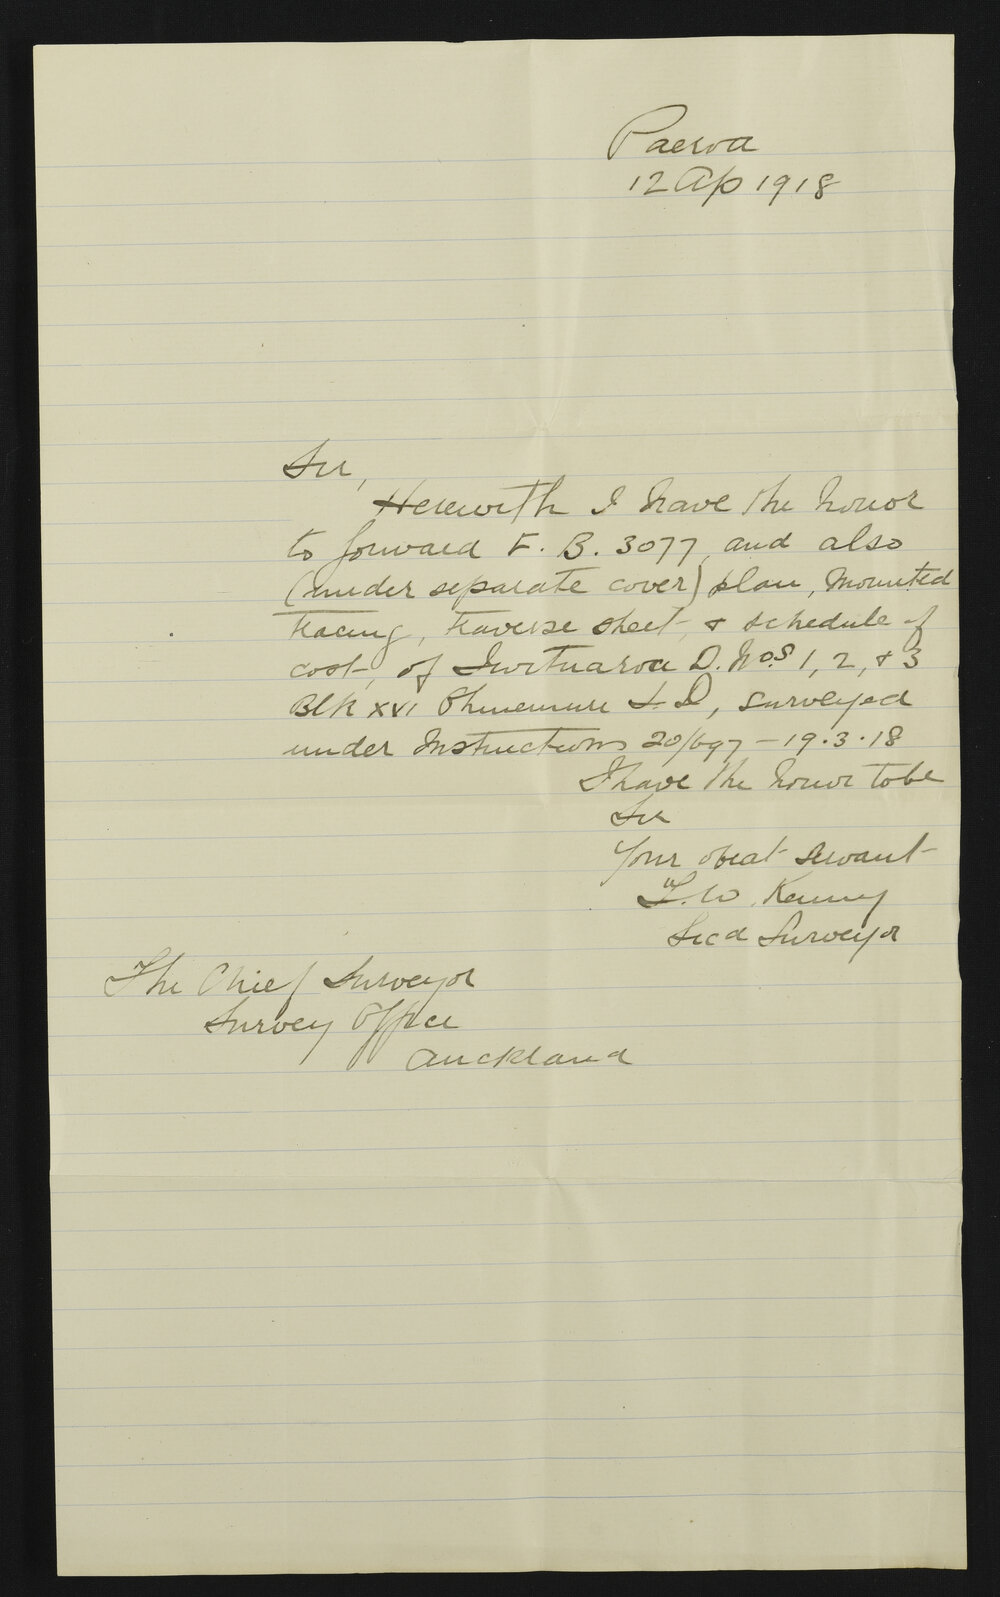 Paeroa
12 Ap 1918
Sir,
Herewith I have the honor
to forward F. B. 3077, and also
(under separate cover) plan, mounted
tracing, traverse sheet, & schedule of
cost, of Iwituaroa D. Nos 1, 2, & 3
Blk XVI Ohinemuri S. D, surveyed
under Instructions 20/697 - 19.3.18
I have the honor to be
Sir
Your obedt servant
T. W. Kenny
Licd Surveyor
The Chief Surveyor
Survey Office
Auckland